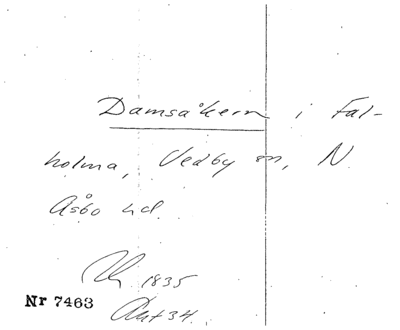 Damsåkern i Fal-
holma, Vedby sn, N
Åsbo hd.
1835
Nr 7463
Akt 34